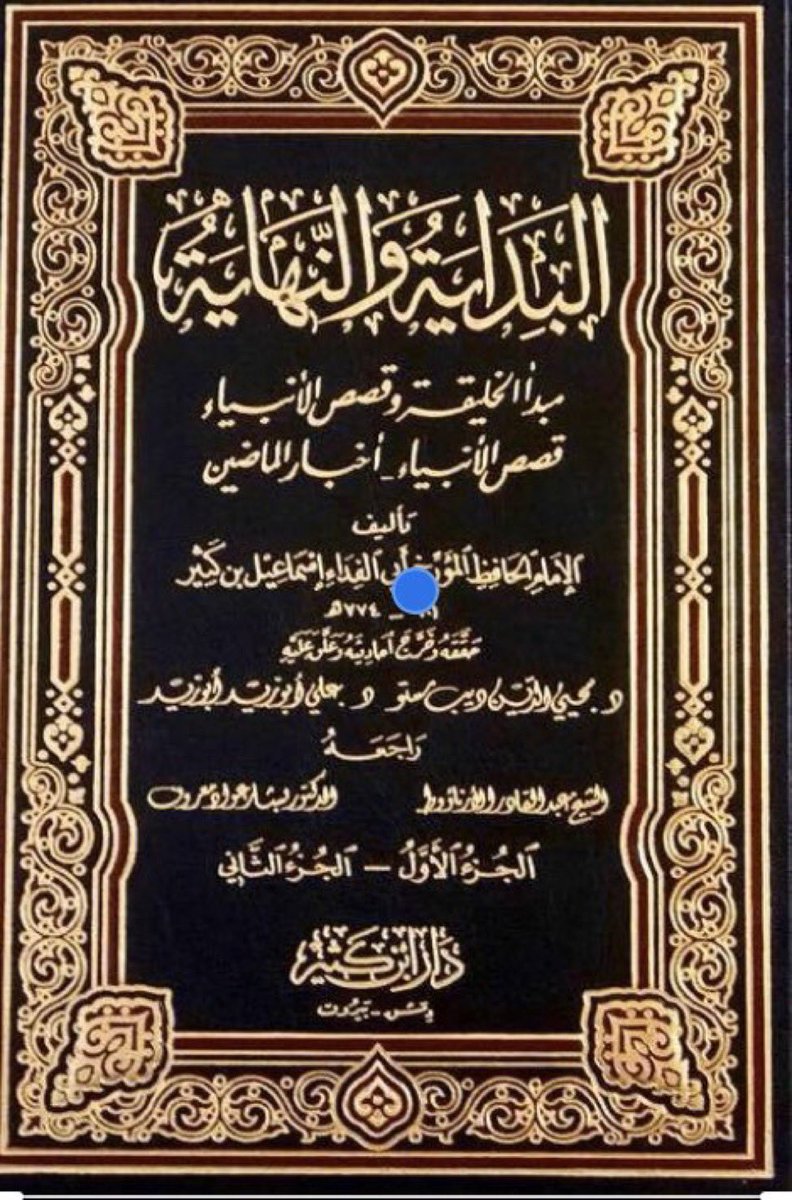 البَدِايَةُ وَالنِّهَايَةُ
مبدأ الخليقة وقصص الأنبياء
قصص الأنبياء - أخبار الماضين
تأليف
الإمام الحافظ المؤرخ أبي الفداء إسماعيل بن كثير
- ٧٧٤ هـ
حَقَّقَهُ وَخَرَّجَ أَحَادِيثَهُ وَعَلَّقَ عَلَيْهِ
د. محيي الدين ديب مستو د. علي أبو زيد أبو زيد
رَاجَعَهُ
الشيخ عبد القادر الأرناؤوط الدكتور بشار عواد معروف
الجُزءُ الأَوَّلُ - الجُزءُ الثَّانِي
دَارُ ابْنِ كَثِيرٍ
دمشق - بيروت